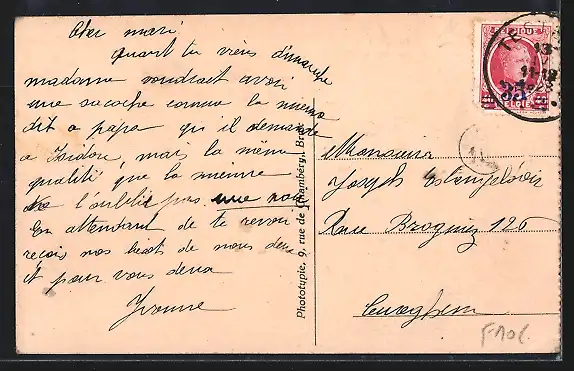 Cher mari
Quant tu viens dimanche
madame voudrait avoir
une sacoche comme la mienne
dit a papa qu'il demande
a Isidore, mais la même
qualité que la mienne
ne l'oublie pas une noir
En attendant de te revoir
reçois nos de nous deux
et pour vous deux
Yvonne
Phototypie, 9, rue de Chambéry, Brux
BELGIQUE
35
BELGIE
13
Monsieur
Joseph
Rue Brogniez 126
Cureghem